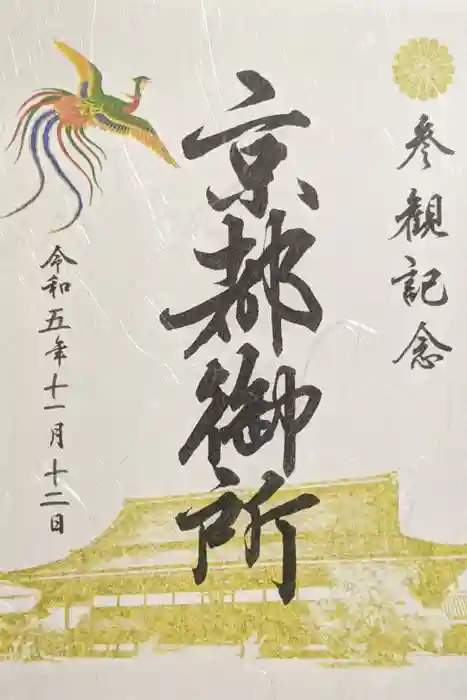 參觀記念
京都御所
令和五年十一月十二日